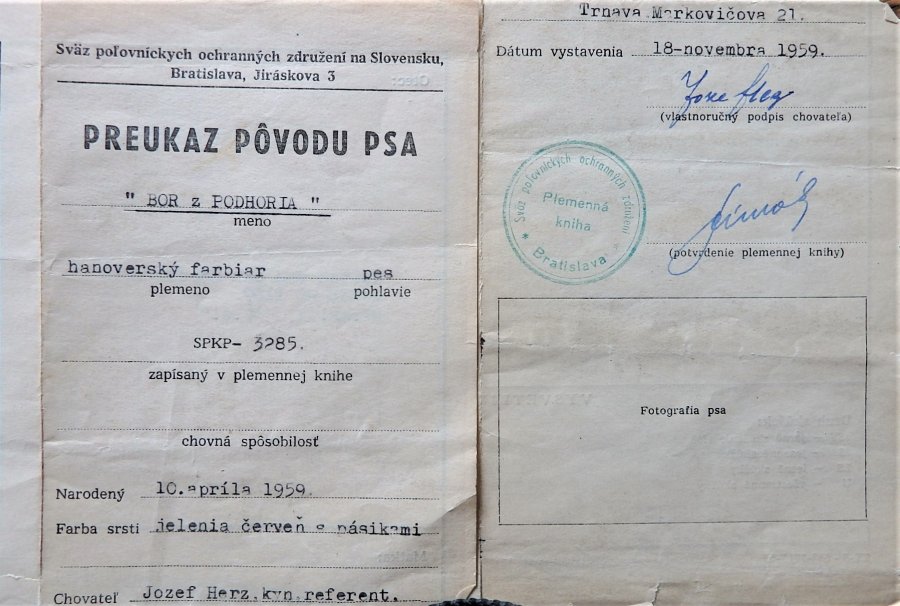 Sväz poľovníckych ochranných združení na Slovensku,
Bratislava, Jiráskova 3
PREUKAZ PÔVODU PSA
" BOR z PODHORIA "
meno
hanoverský farbiar pes
plemeno pohlavie
SPKP- 3285.
zapísaný v plemennej knihe
chovná spôsobilosť
Narodený 10.apríla 1959.
Farba srsti jelenia červeň s pásikami
Chovateľ Jozef Herz,kyn.referent.
Trnava,Markovičova 21.
Dátum vystavenia 18-novembra 1959.
(vlastnoručný podpis chovateľa)
Sväz poľovníckych ochranných združení
Plemenná
kniha
* Bratislava *
(potvrdenie plemennej knihy)
Fotografia psa